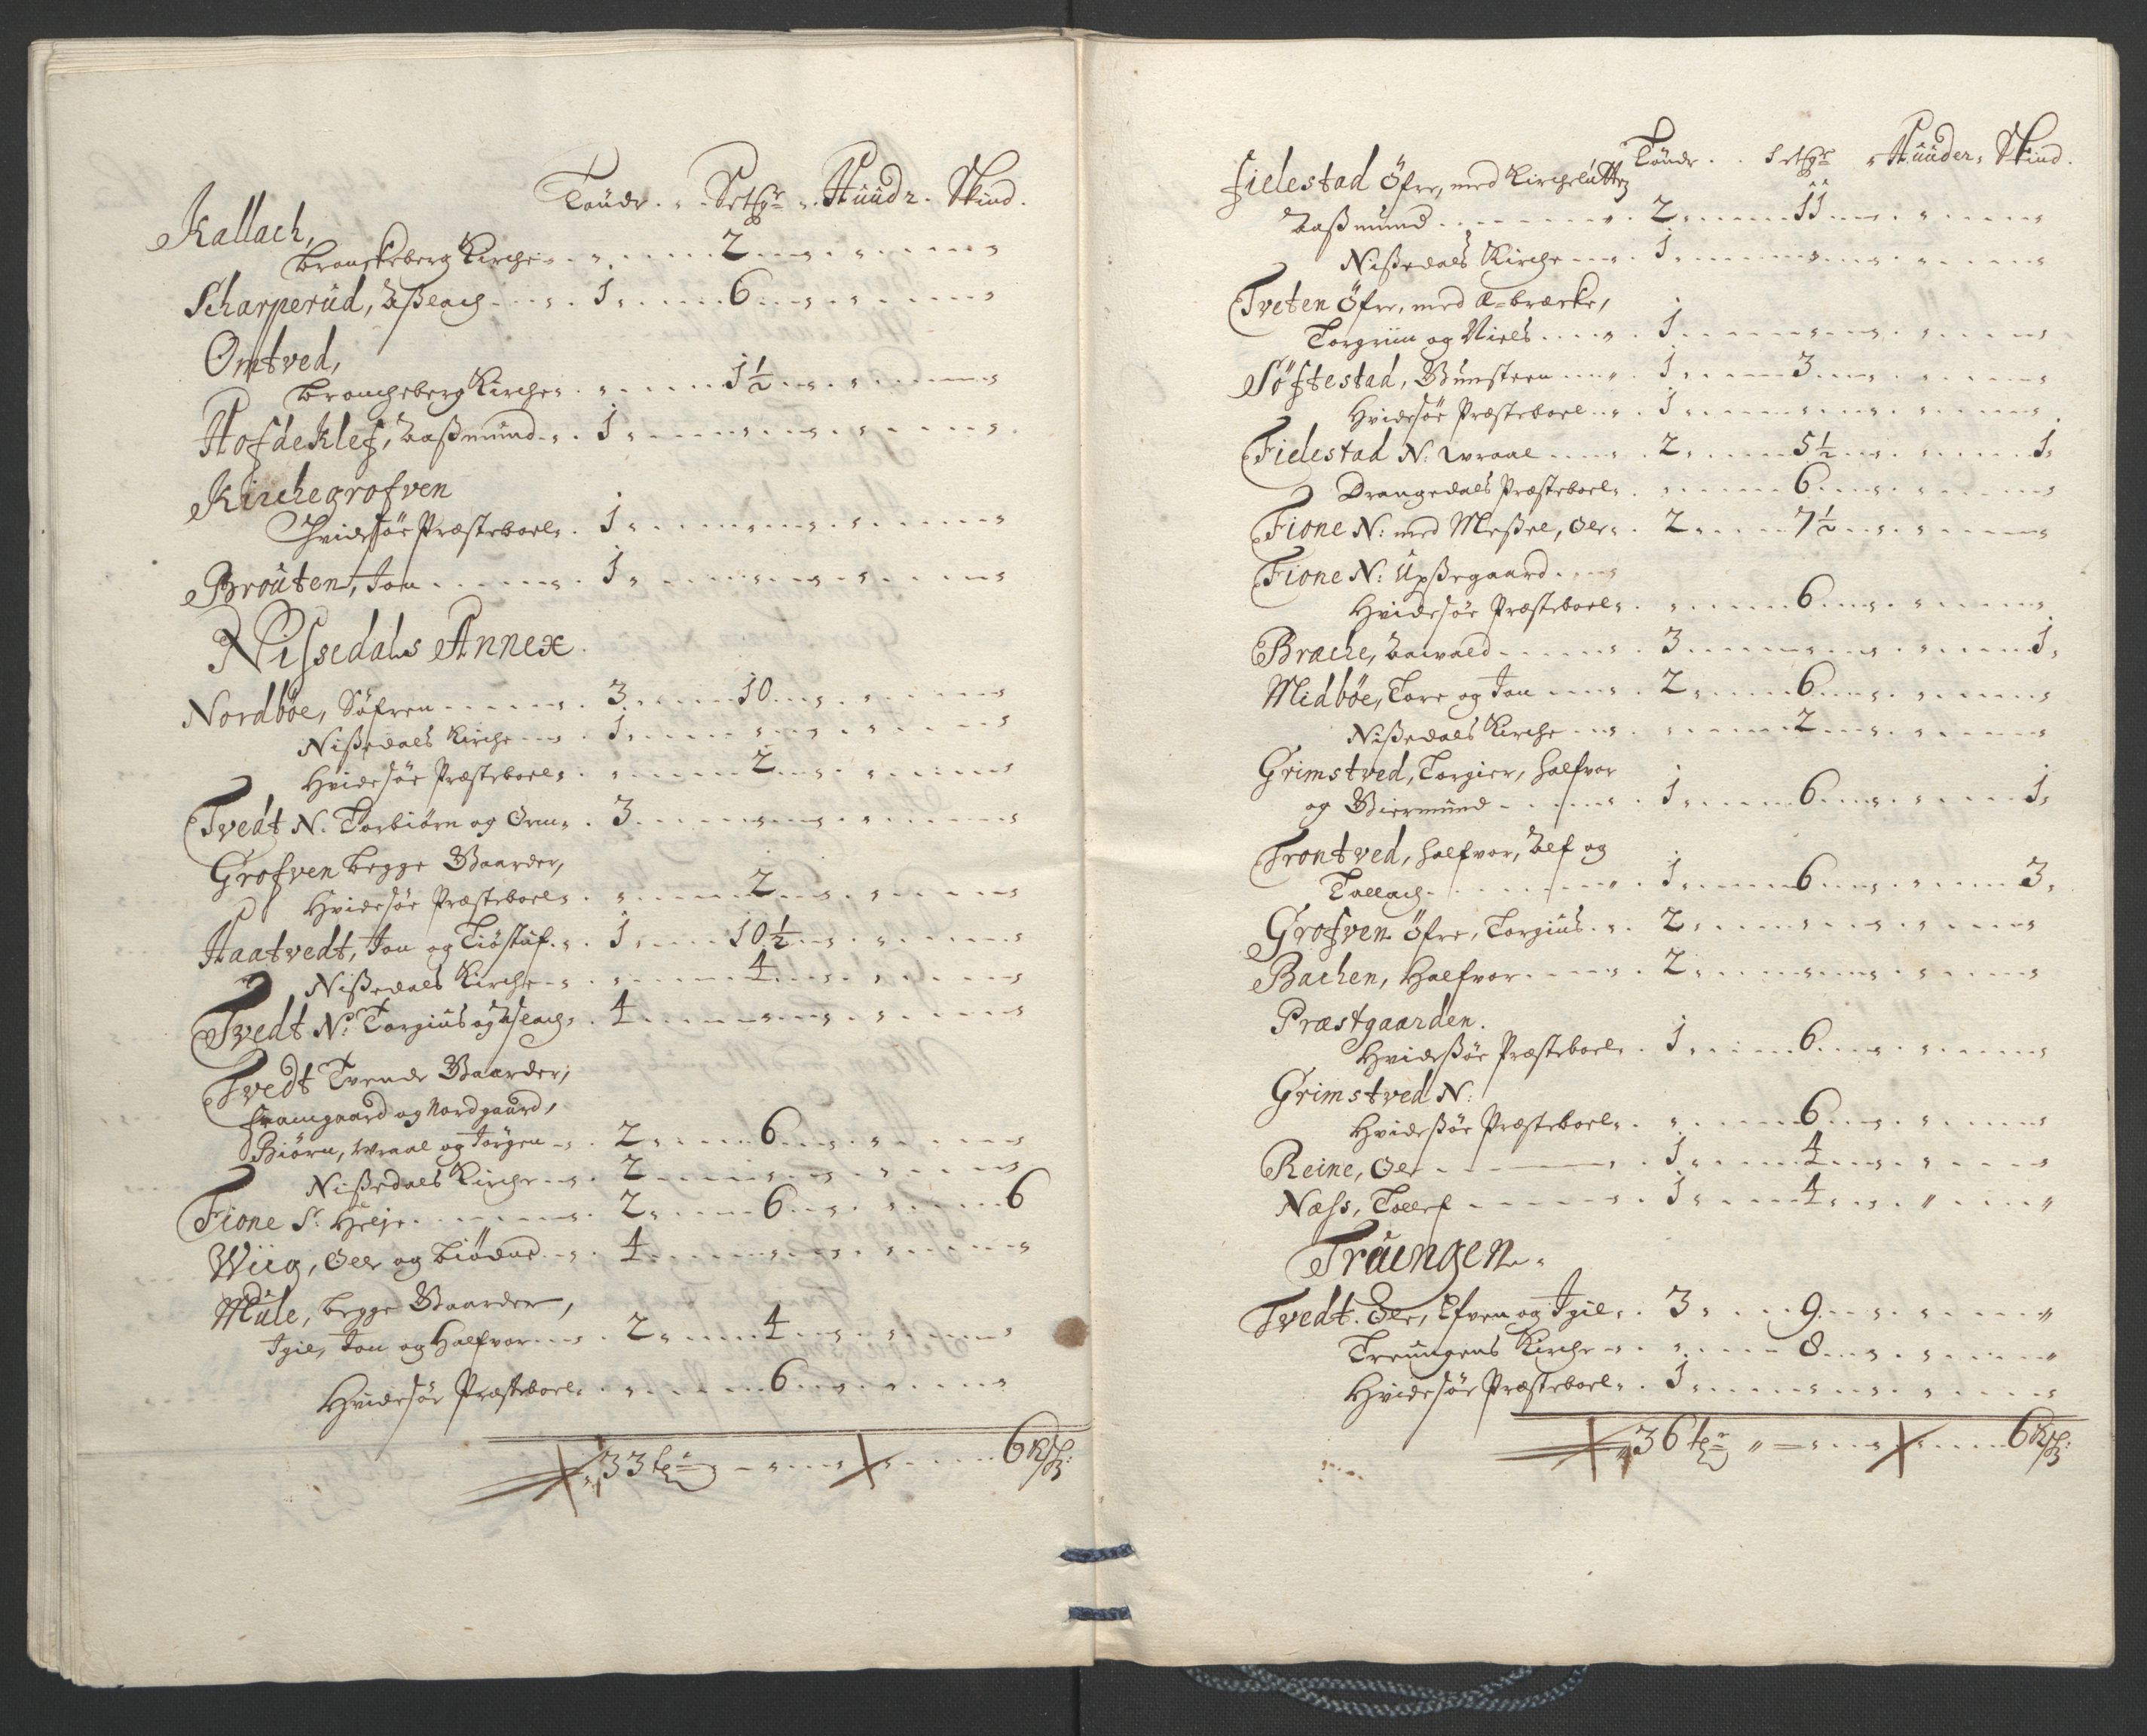 Tøndr. Setgr. Huudr. Skind.
Kallach,
Brouscheberg Kirche 2
Scharperud, Aßlach 1 6
Omtved,
Broucheberg Kirche 1½
Hofdeklef, Aaßmund 1
Kirchegrofven
Hvidesøe Præsteboel 1
Brouten, Jon 1
Nissedals Annex
Nordbøe, Søfren 3 10
Nißedals Kirche 1
Hvidesøe Præsteboel 2
Tvedt N. Torbiørn og Orm 3
Grofven begge Gaarder,
Hvidesøe Præsteboel 2
Haatvedt, Jon og Tiøstuf 1 10½
Nißedals Kirche 4
Tvedt N. Torgius og Aslach 4
Tvedt Tvende Gaarder,
Framgaard og Nordgaard,
Biørn, Wraal og Jørgen 2 6
Nißedals Kirche 2
Fione S. Helje 2 6 6
Wiig, Oele og 4
Mule, begge Gaarder,
Igil, Jon og Halfvor 2 4
Hvidesøe Præsteboel 6
33 6
Tøndr. Setgr. Huuder. Skind.
Fielestad Øfre, med
Aaßmund 2 11
Nißedals Kirche 1
Tveten Øfre, med
Torgrim og Niels 1
Søftestad, Gunsteen 1 3
Hvidesøe Præsteboel 1
Fielestad N: Wraal 2 5½ 1
Drangedals Præsteboel 6
Fione N: med Meßel, Ole 2 7½
Fione N: Upßegaard
Hvidesøe Præsteboel 6
Brache, Aavald 3 1
Midbøe, Tore og Jon 2 6
Nißedals Kirche 2
Grimstved, Torgier, Halfvor
og Giermund 1 6 1
Trontved, Halfvor, Alf og
Tollach 1 6 3
Grofven Øfre, Torgius 2
Bachen, Halfvor 2
Præstgaarden.
Hvideßøe Præsteboel 1 6
Grimstved N:
Hvideßøe Præsteboel 6
Reine, Ole 1 4
Næss, Tollef 1 4
Truengen.
Tvedt. Ole, Efven og Igil 3 9
Treungens Kirche 8
Hvidesøe Præsteboel 1
36 6